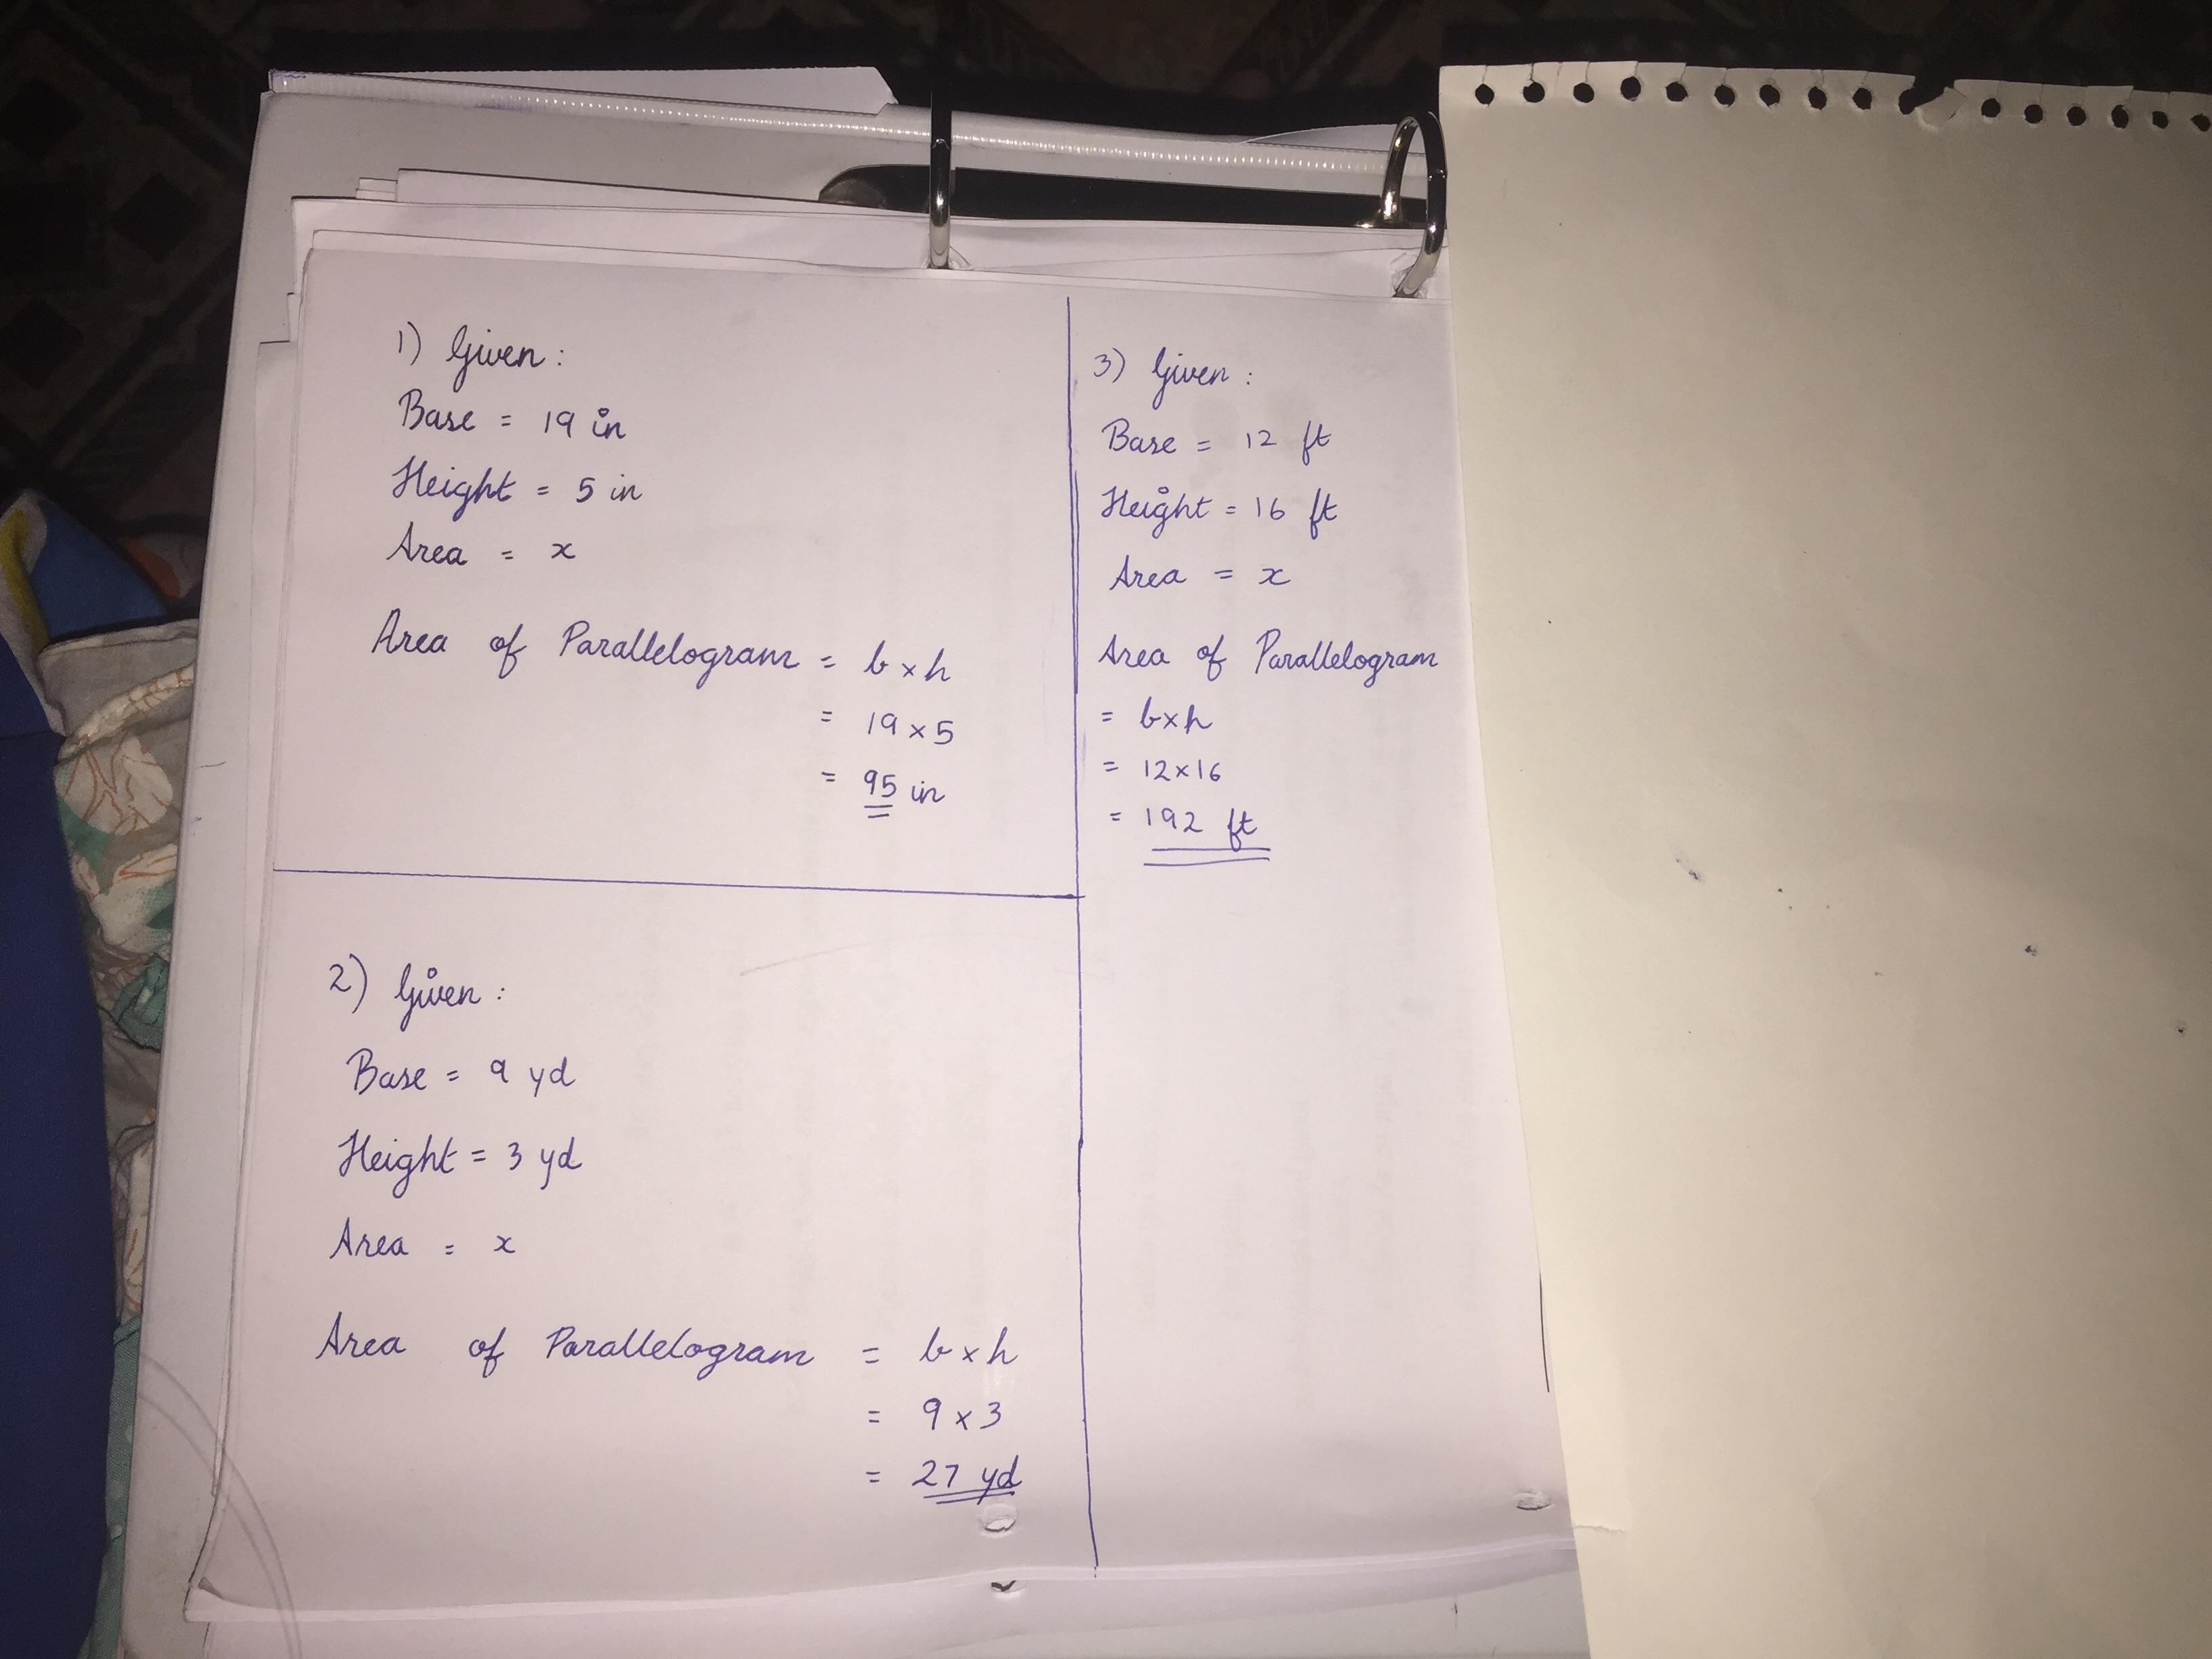 1) Given :
Base = 19 in
Height = 5 in
Area = x
Area of Parallelogram = b x h
= 19 x 5
= 95 in
2) Given :
Base = 9 yd
Height = 3 yd
Area = x
Area of Parallelogram = b x h
= 9 x 3
= 27 yd
3) Given :
Base = 12 ft
Height = 16 ft
Area = x
Area of Parallelogram
= b x h
= 12 x 16
= 192 ft